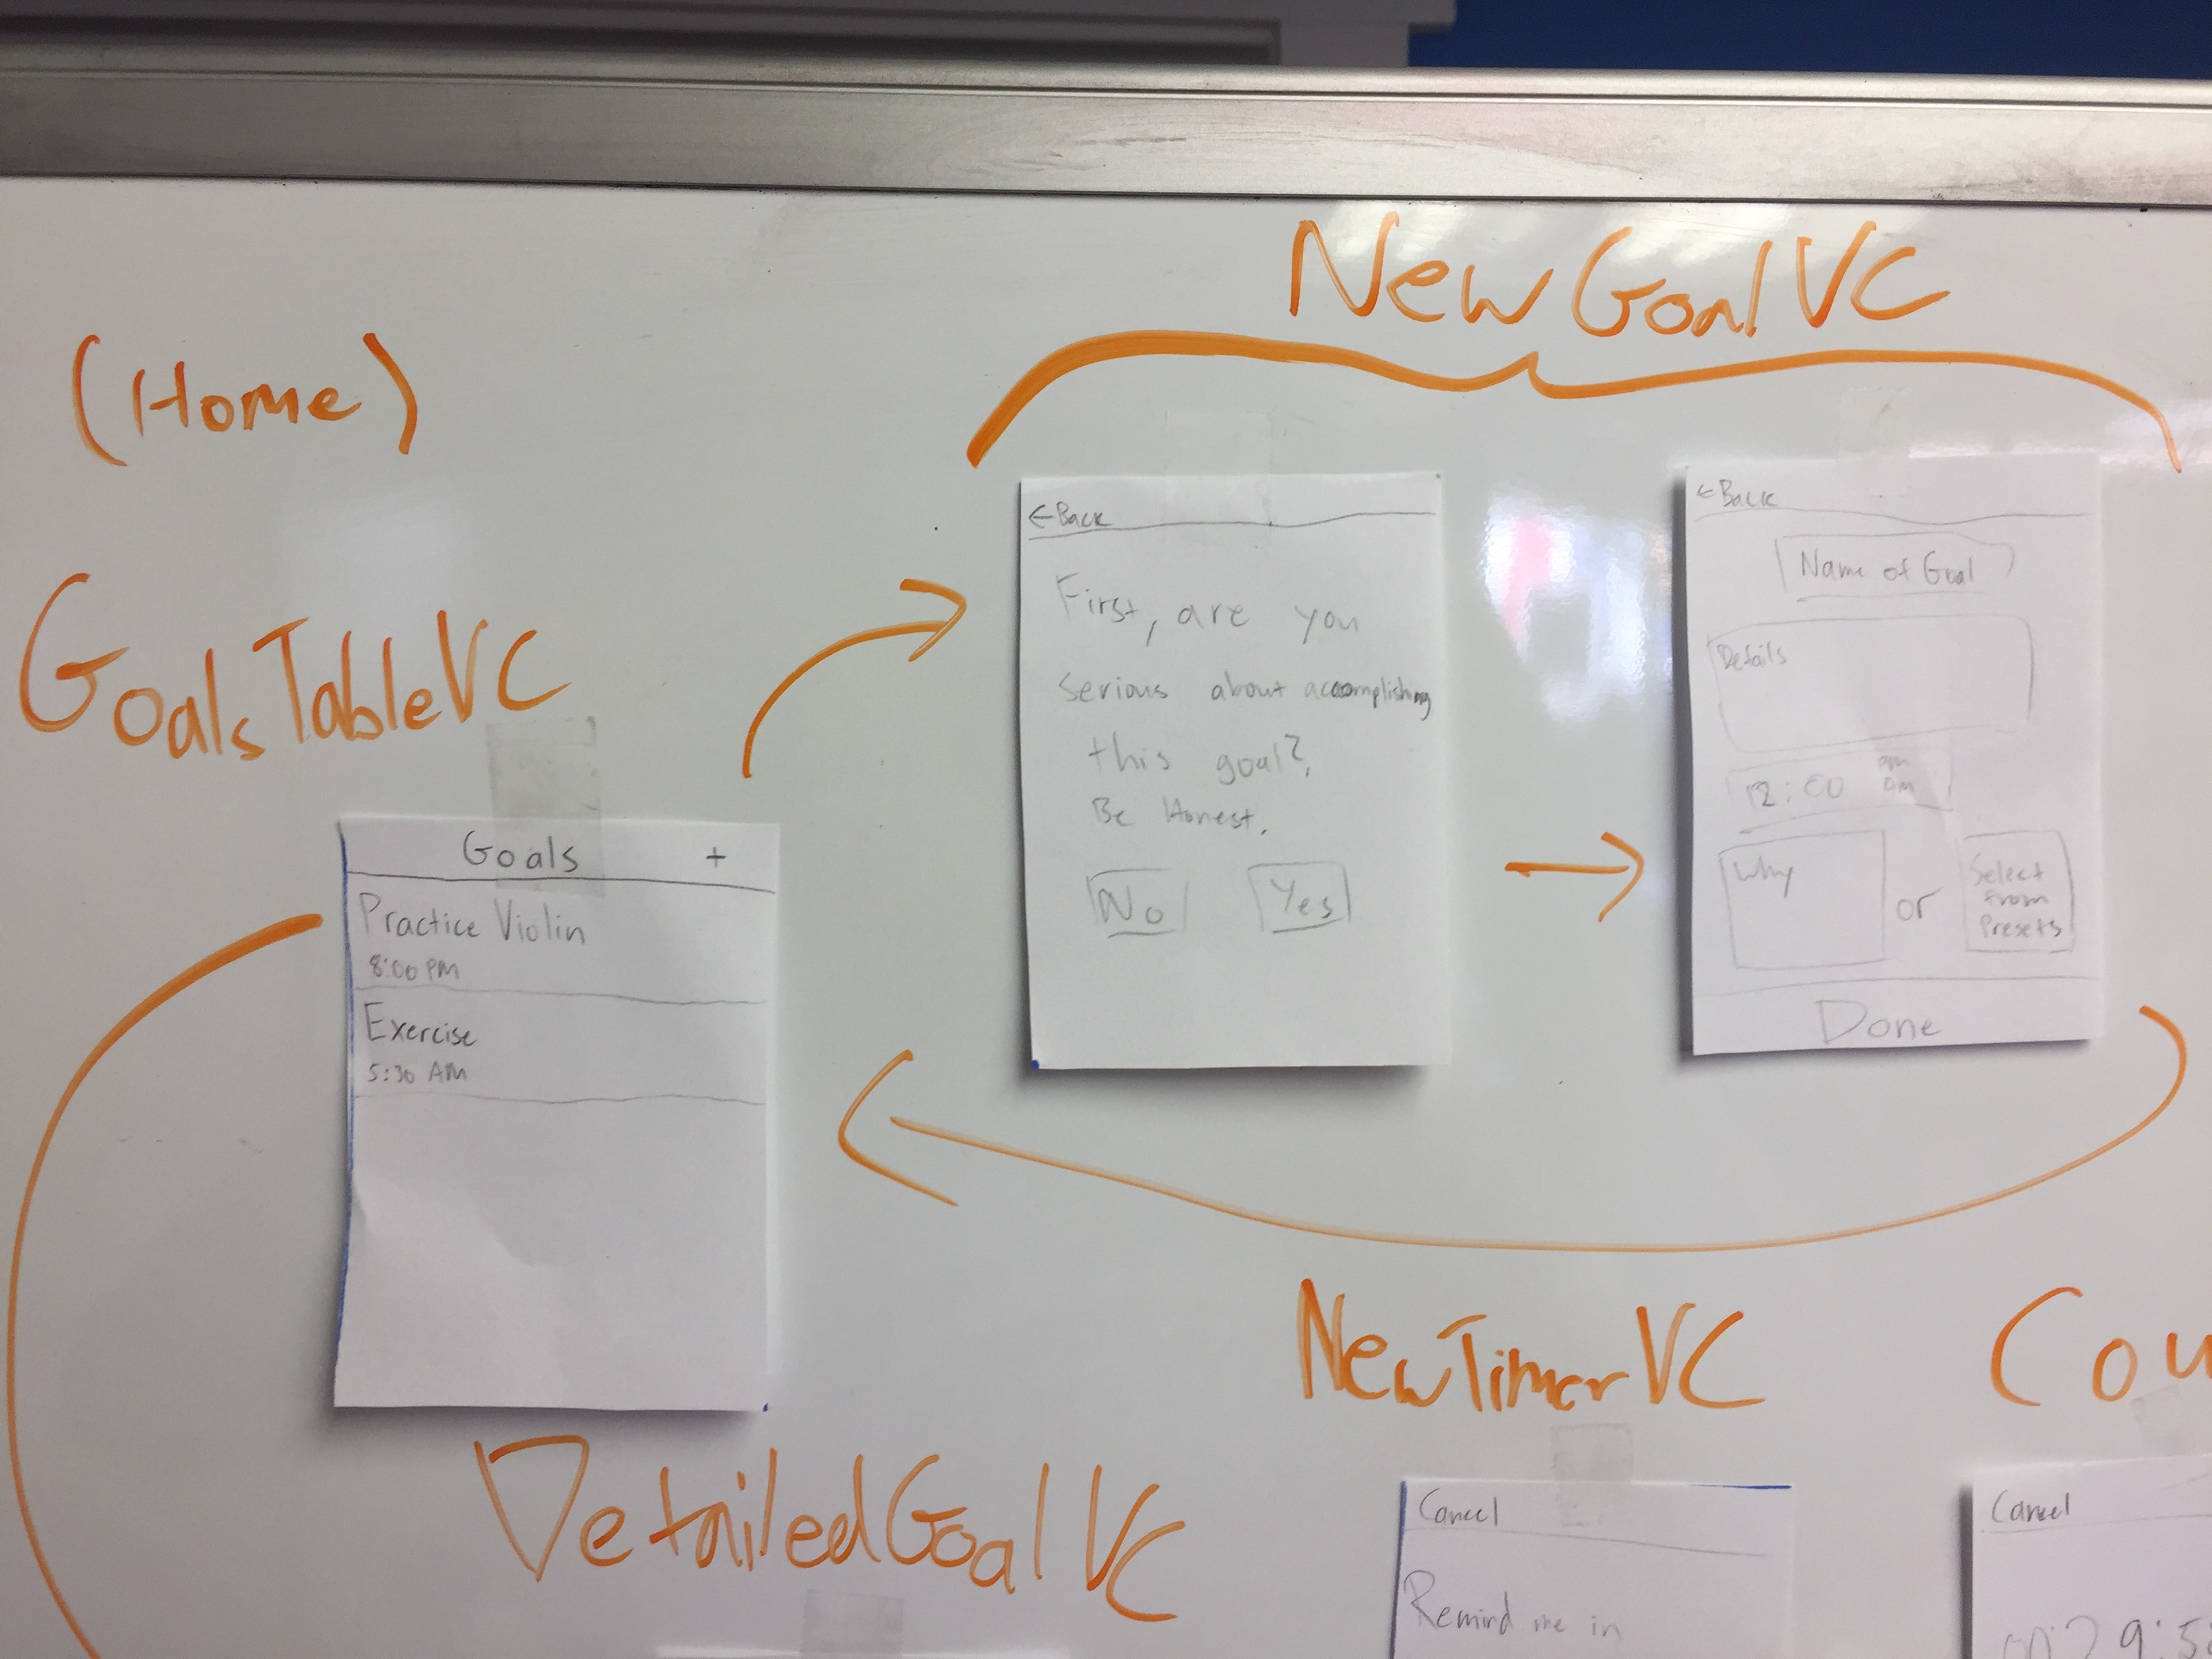 (Home)
GoalsTableVC
Goals +
Practice Violin
8:00 PM
Exercise
5:30 AM
NewGoalVC
←Back
First, are you
serious about accomplishing
this goal?
Be Honest.
No Yes
←Back
Name of Goal
Details
12:00 am
pm
Why or Select
From
Presets
Done
DetailedGoalVC
NewTimerVC
Cancel
Remind me in
Cou
Cancel